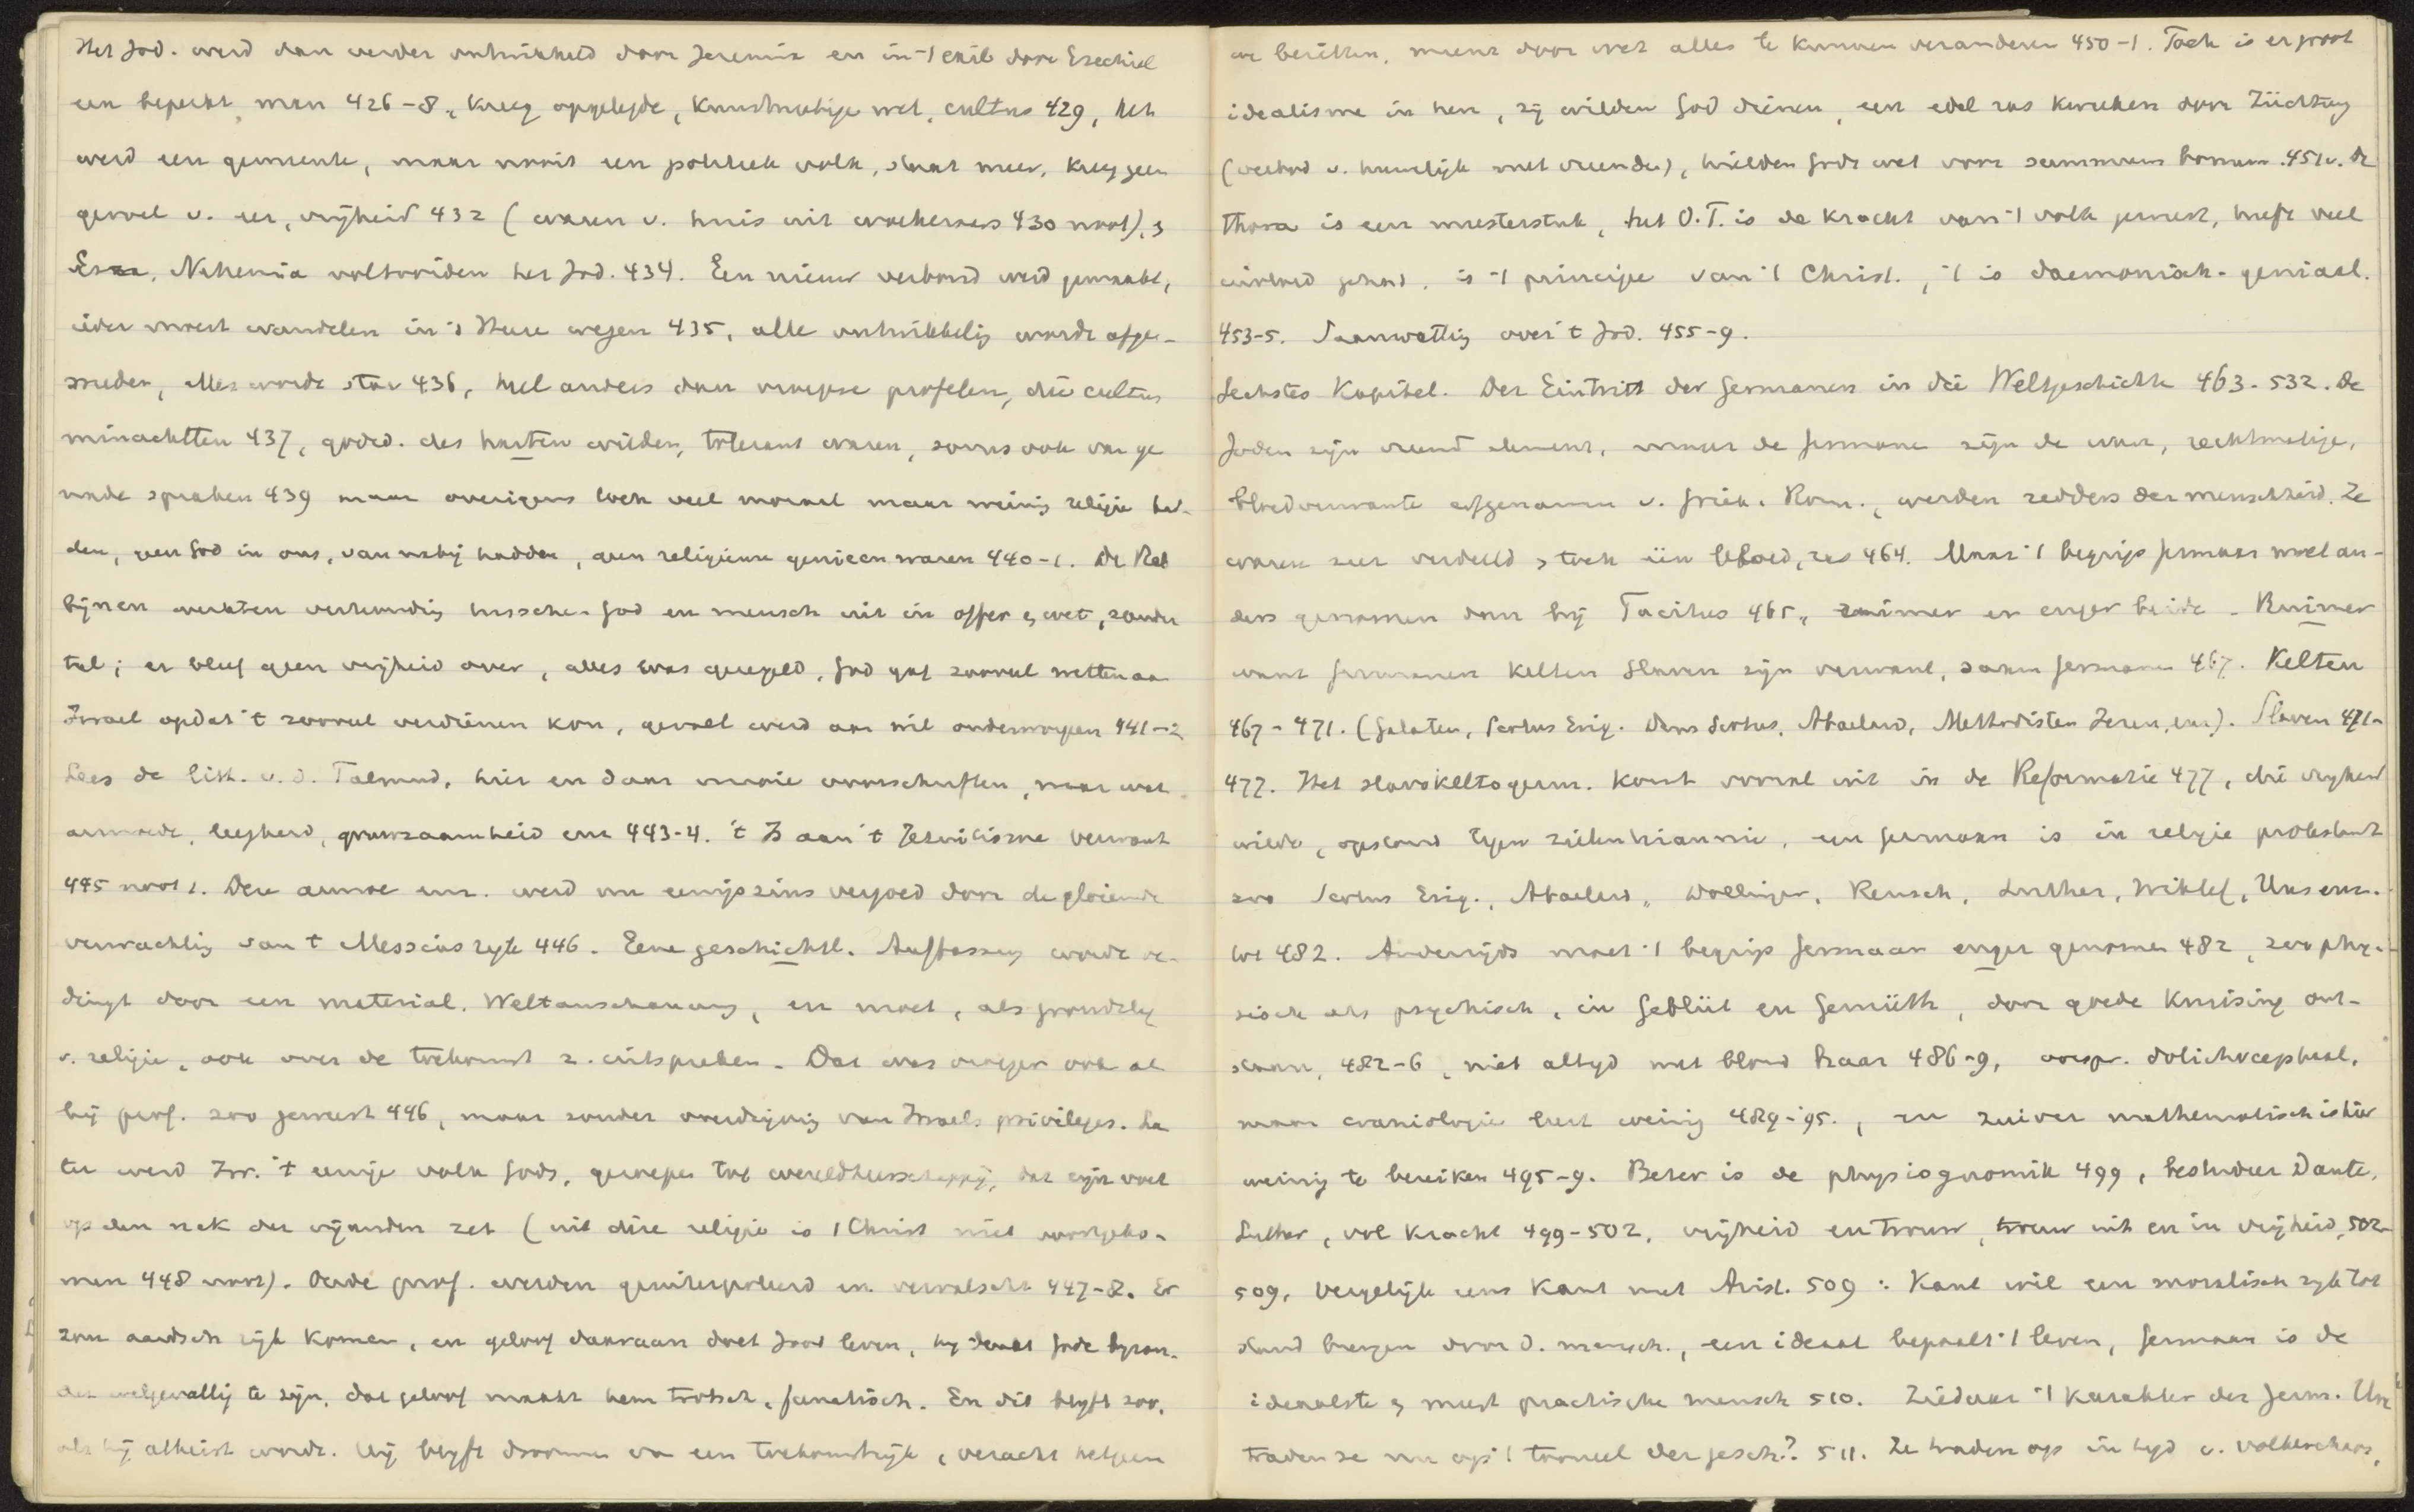 Het Jod. werd dan verder ontwikkeld door Jeremia en in 't exil door Ezechiel
een beperkt man 426-8, kreeg opgelegde, kunstmatige wet, cultus 429, het
werd een gemeente, maar nooit een politiek volk, staat meer, kreeg geen
gevoel v. eer, vrijheid 432 (waren v. huis uit woekeraars 430 noot),
Esra, Nehemia voltooiden het Jod. 434. Een nieuw verbond werd gemaakt,
ieder moest wandelen in 's Heren wegen 435, alle ontwikkeling werd afge-
sneden, alles werd star 436, heel anders dan vroegere profeten, die cultus
minachtten 437, godsd. des harten wilden, tolerant waren, soms ook van ge
nade spraken 439 maar overigens toch veel moraal maar weinig religie had-
den, geen God in ons, van nabij hadden, geen religieuse genieen waren 440-1. De Rab
bijnen werkten verhouding tusschen God en mensch uit in offer & wet, zonder
tal; er bleef geen vrijheid over, alles was geregeld, God gaf zooveel wetten aan
Israel opdat 't zooveel verdienen kon, gevoel werd aan wil onderworpen 441-2
Lees de litt. v. d. Talmud, hier en daar mooie voorschriften, maar wat
armoede, leegheid, gruwzaamheid enz 443-4. 't Is aan 't Jezuitisme verwant
445 noot 1. Deze armoe enz. werd nu eenigszins vergoed door de gloeiende
verwachting van 't Messias rijk 446. Eene geschichtl. Auffassung wordt be-
dingt door een material. Weltanschauung, en moet, als grondslag
v. religie, ook over de toekomst z. uitspreken. Dat was vroeger ook al
bij prof. zoo geweest 446, maar zonder overdrijving van Israels privileges. La
ter werd Isr. 't eenige volk Gods, geroepen tot wereldheerschappij, dat zijn voet
op den nek der vijanden zet (uit deze religie is 't Christ niet voortgeko-
men 448 noot). Oude prof. werden geinterpoleerd en vervalscht 447-8. Er
zou aardsch rijk komen, en geloof daaraan doet Jood leven, hij denkt Gode bijzon-
der welgevallig te zijn, dat geloof maakt hem trotsch, fanatisch. En dit blijft zoo,
als hij atheist wordt. Hij blijft droomen van een toekomstrijk, veracht hetgeen
we bezitten, meent door wet alles te kunnen veranderen 450-1. Toch is er groot
idealisme in hen, zij wilden God dienen, een edel ras kweeken door Züchtung
(verbod v. huwelijk met vreemden), hielden Gods wet voor summum bonum 451v. de
thora is een meesterstuk, het O.T. is de kracht van 't volk geweest, heeft veel
invloed gehad, is 't principe van 't Christ., 't is daemonisch-geniaal.
453-5. Samenvatting over 't Jod. 455-9.
Sechstes Kapitel. Der Eintritt der Germanen in die Weltgeschichte 463-532. De
Joden zijn vreemd element, maar de Germanen zijn de ware, rechtmatige,
bloedverwante erfgenamen v. Griek. Rom., werden redders der menschheid. Ze
waren zeer verdeeld & toch één bloed, ras 464. Maar 't begrip Germaan moet an-
ders genomen dan bij Tacitus 465, ruimer en enger beide. Ruimer
want Germanen Kelten Slaven zijn verwant, samen Germanen 467. Kelten
467-471. (Galaten, Scotus Erig. Duns Scotus, Abaelard, Methodisten Ieren, enz). Slaven 471-
477. Het slavokeltogerm. komt vooral uit in de Reformatie 477, die vrijheid
wilde, opstand tegen zielentirannie, een Germaan is in religie protestant
zoo Scotus Erig., Abaelard, Döllinger, Reusch, Luther, Wiklef, Hus enz.
tot 482. Anderzijds moet 't begrip Germaan enger genomen 482, zoo phy-
sisch als psychisch, in Geblüt en Gemüth, door goede kruising ont-
staan, 482-6, niet altijd met blond haar 486-9, oorspr. dolichocephaal,
maar craniologie leert weinig 489-95., en zuiver mathematisch is hier
weinig te bereiken 495-9. Beter is de physiognomik 499, bestudeer Dante,
Luther, vol kracht 499-502, vrijheid en trouw, trouw uit en in vrijheid, 502-
509, vergelijk eens Kant met Arist. 509: Kant wil een moralisch rijk tot
stand brengen door d. mensch., een ideaal bepaalt 't leven, Germaan is de
idealste & meest practische mensch 510. Ziedaar 't karakter der Germ. Hoe
traden ze nu op 't tooneel der gesch.? 511. Ze traden op in tijd v. volkenchaos,